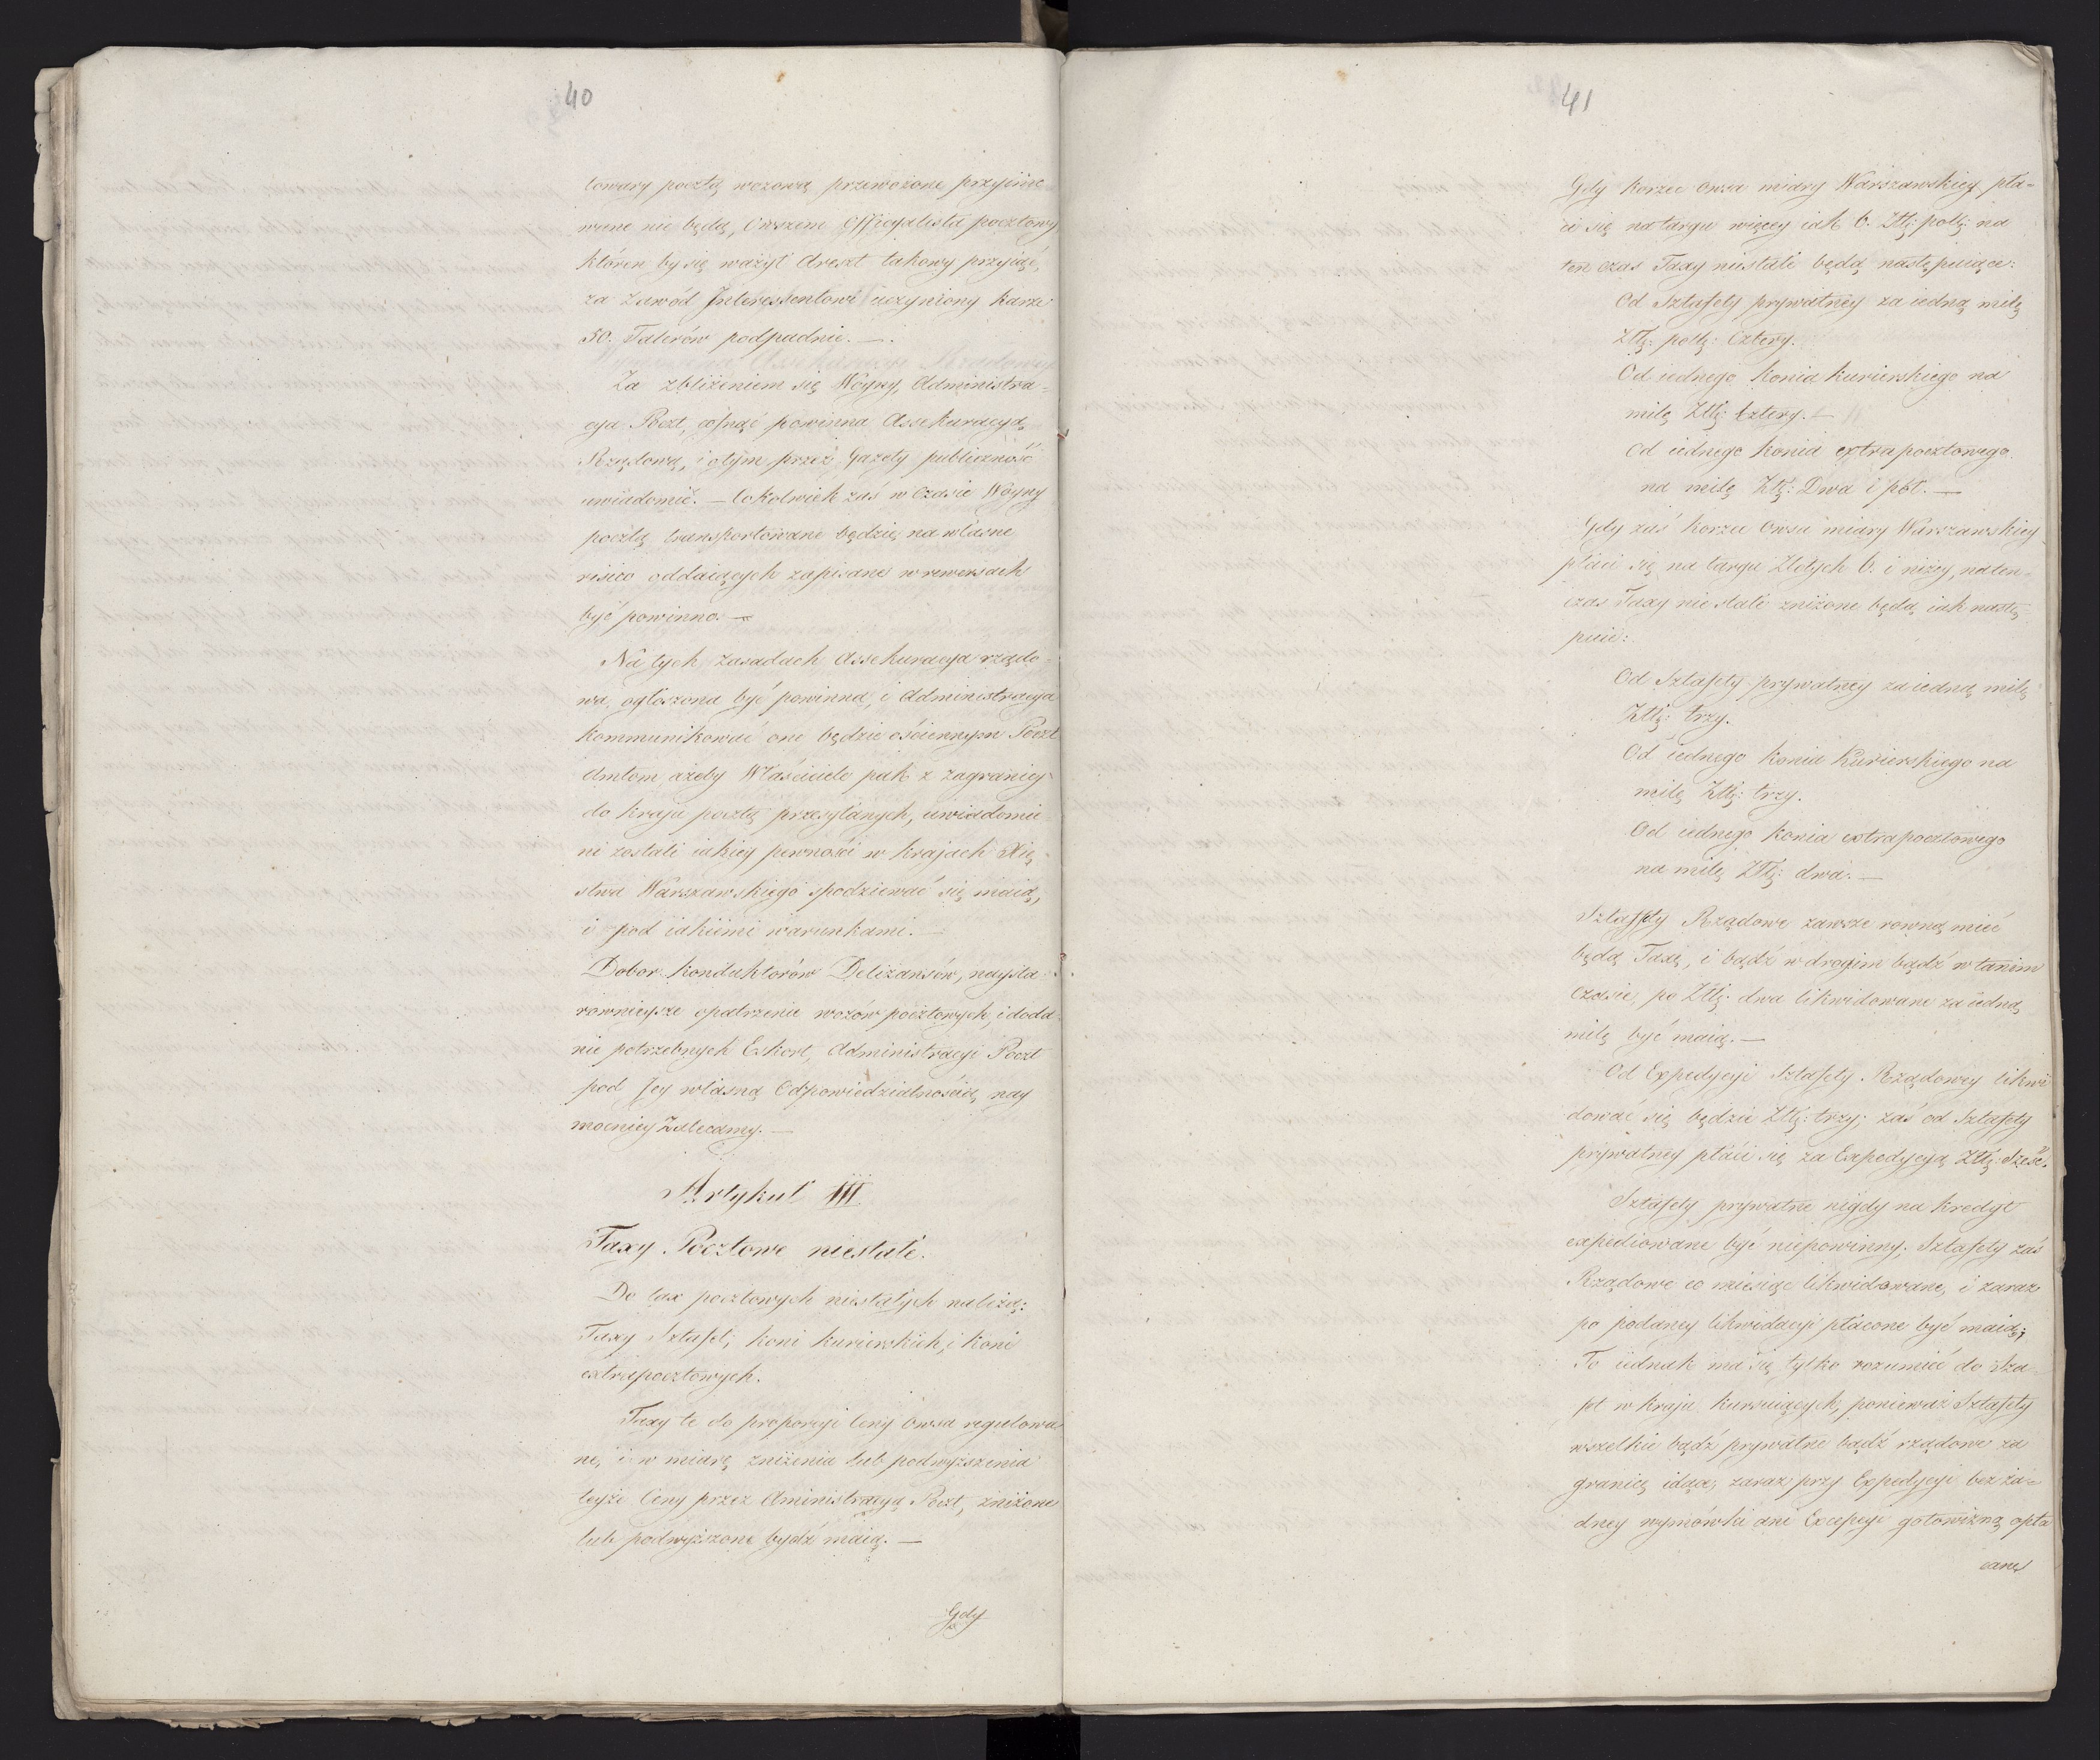 40
towary pocztą wozową przewożone przyimo
wane nie będą, Owszem Officyalista pocztowy
któren by się ważył Areszt takowy przyiąć,
za zawód Interessentowi uczyniony karze
50. Talerów podpadnie. —.
Za zbliżeniem się Woyny, Administra=
cya Poczt, cofnąć powinna Assekuracyą
Rządową, i otym przez Gazety publiczność
uwiadomić. — Cokolwiek zaś w Czasie Woyny
pocztą transportowane będzie, na własne
risico oddaiących zapisane w rewersach
być powinno. —
Na tych zasadach Assekuracya rządo=
wa, ogłoszona być powinna, i Administracya
kommunikować one będzie ościennym Poczt
Amtom, ażeby Właściciele pak z zagranicy
do kraju pocztą przesyłanych, uwiadomie
ni zostali iakiey pewności w krajach Xię
stwa Warszawskiego spodziewać się maią,
i pod iakiemi warunkami. —
Dobor Konduktorów Deliżansów, naysta=
rownieysze opatrzenie wozów pocztowych, i doda
nie potrzebnych Eskort, Administracyi Poczt
pod Jey własną Odpowiedzialnością, nay
mocniey Zalecamy. —
Artykuł III
Taxy Pocztowe niestałe.
Do tax pocztowych niestałych należą:
Taxy Sztafet, koni kurierskich, i koni
extrapocztowych.
Taxy te do proporcyi Ceny Owsa regulowa
ne, i w miarę zniżenia lub podwyższenia
teyże Ceny przez Aministracyą Poczt, zniżone
lub podwyższone bydź maią. —
Gdy
41
Gdy korzec Owsa miary Warszawskiey pła=
ci się na targu więcey iak 6. Złł: pollł: na
ten czas Taxy niestałe będą następuiące:
Od Sztafety prywatney za iedną milę
Złł: polł: Cztery.
Od iednego konia kurierskiego na
milę Złł: Cztery. —
Od iednego konia extrapocztowego
na milę Złł: Dwa i pół. —
Gdy zaś korzec Owsa miary Warszawskiey
płaci się na targu Złotych 6. i niżey, naten=
czas Taxy niestałe zniżone będą iak nastę
puie:
Od Sztafety prywatney za iedną milę
Złł: trzy.
Od iednego konia Kurierskiego na
milę Złł: trzy.
Od iednego konia extrapocztowego
na milę Złł: dwa. —
Sztafety Rządowe zawsze rowną mieć
będą Taxę, i bądź w drogim bądź w tanim
czasie, po Złł: dwa likwidowane za iedną
milę być maią. —
Od Expedycyi Sztafety Rządowey likwi
dować się będzie Złł: trzy; zaś od Sztafety
prywatney płaci się za Expedycyą Złł: Sześć.
Sztafety prywatne nigdy na kredyt
expediowane być niepowinny; Sztafety zaś
Rządowe co miesiąc likwidowane, i zaraz
po podaney likwidacyi płacone być maią;
To iednak ma się tylko rozumieć do Szta=
fet w kraju kursuiących, ponieważ Sztafety
wszelkie bądź prywatne bądź rządowe za
granicę idące, zaraz przy Expedycyi bez ża=
dney wymówki ani Excepcyi gotowizną opła
cane